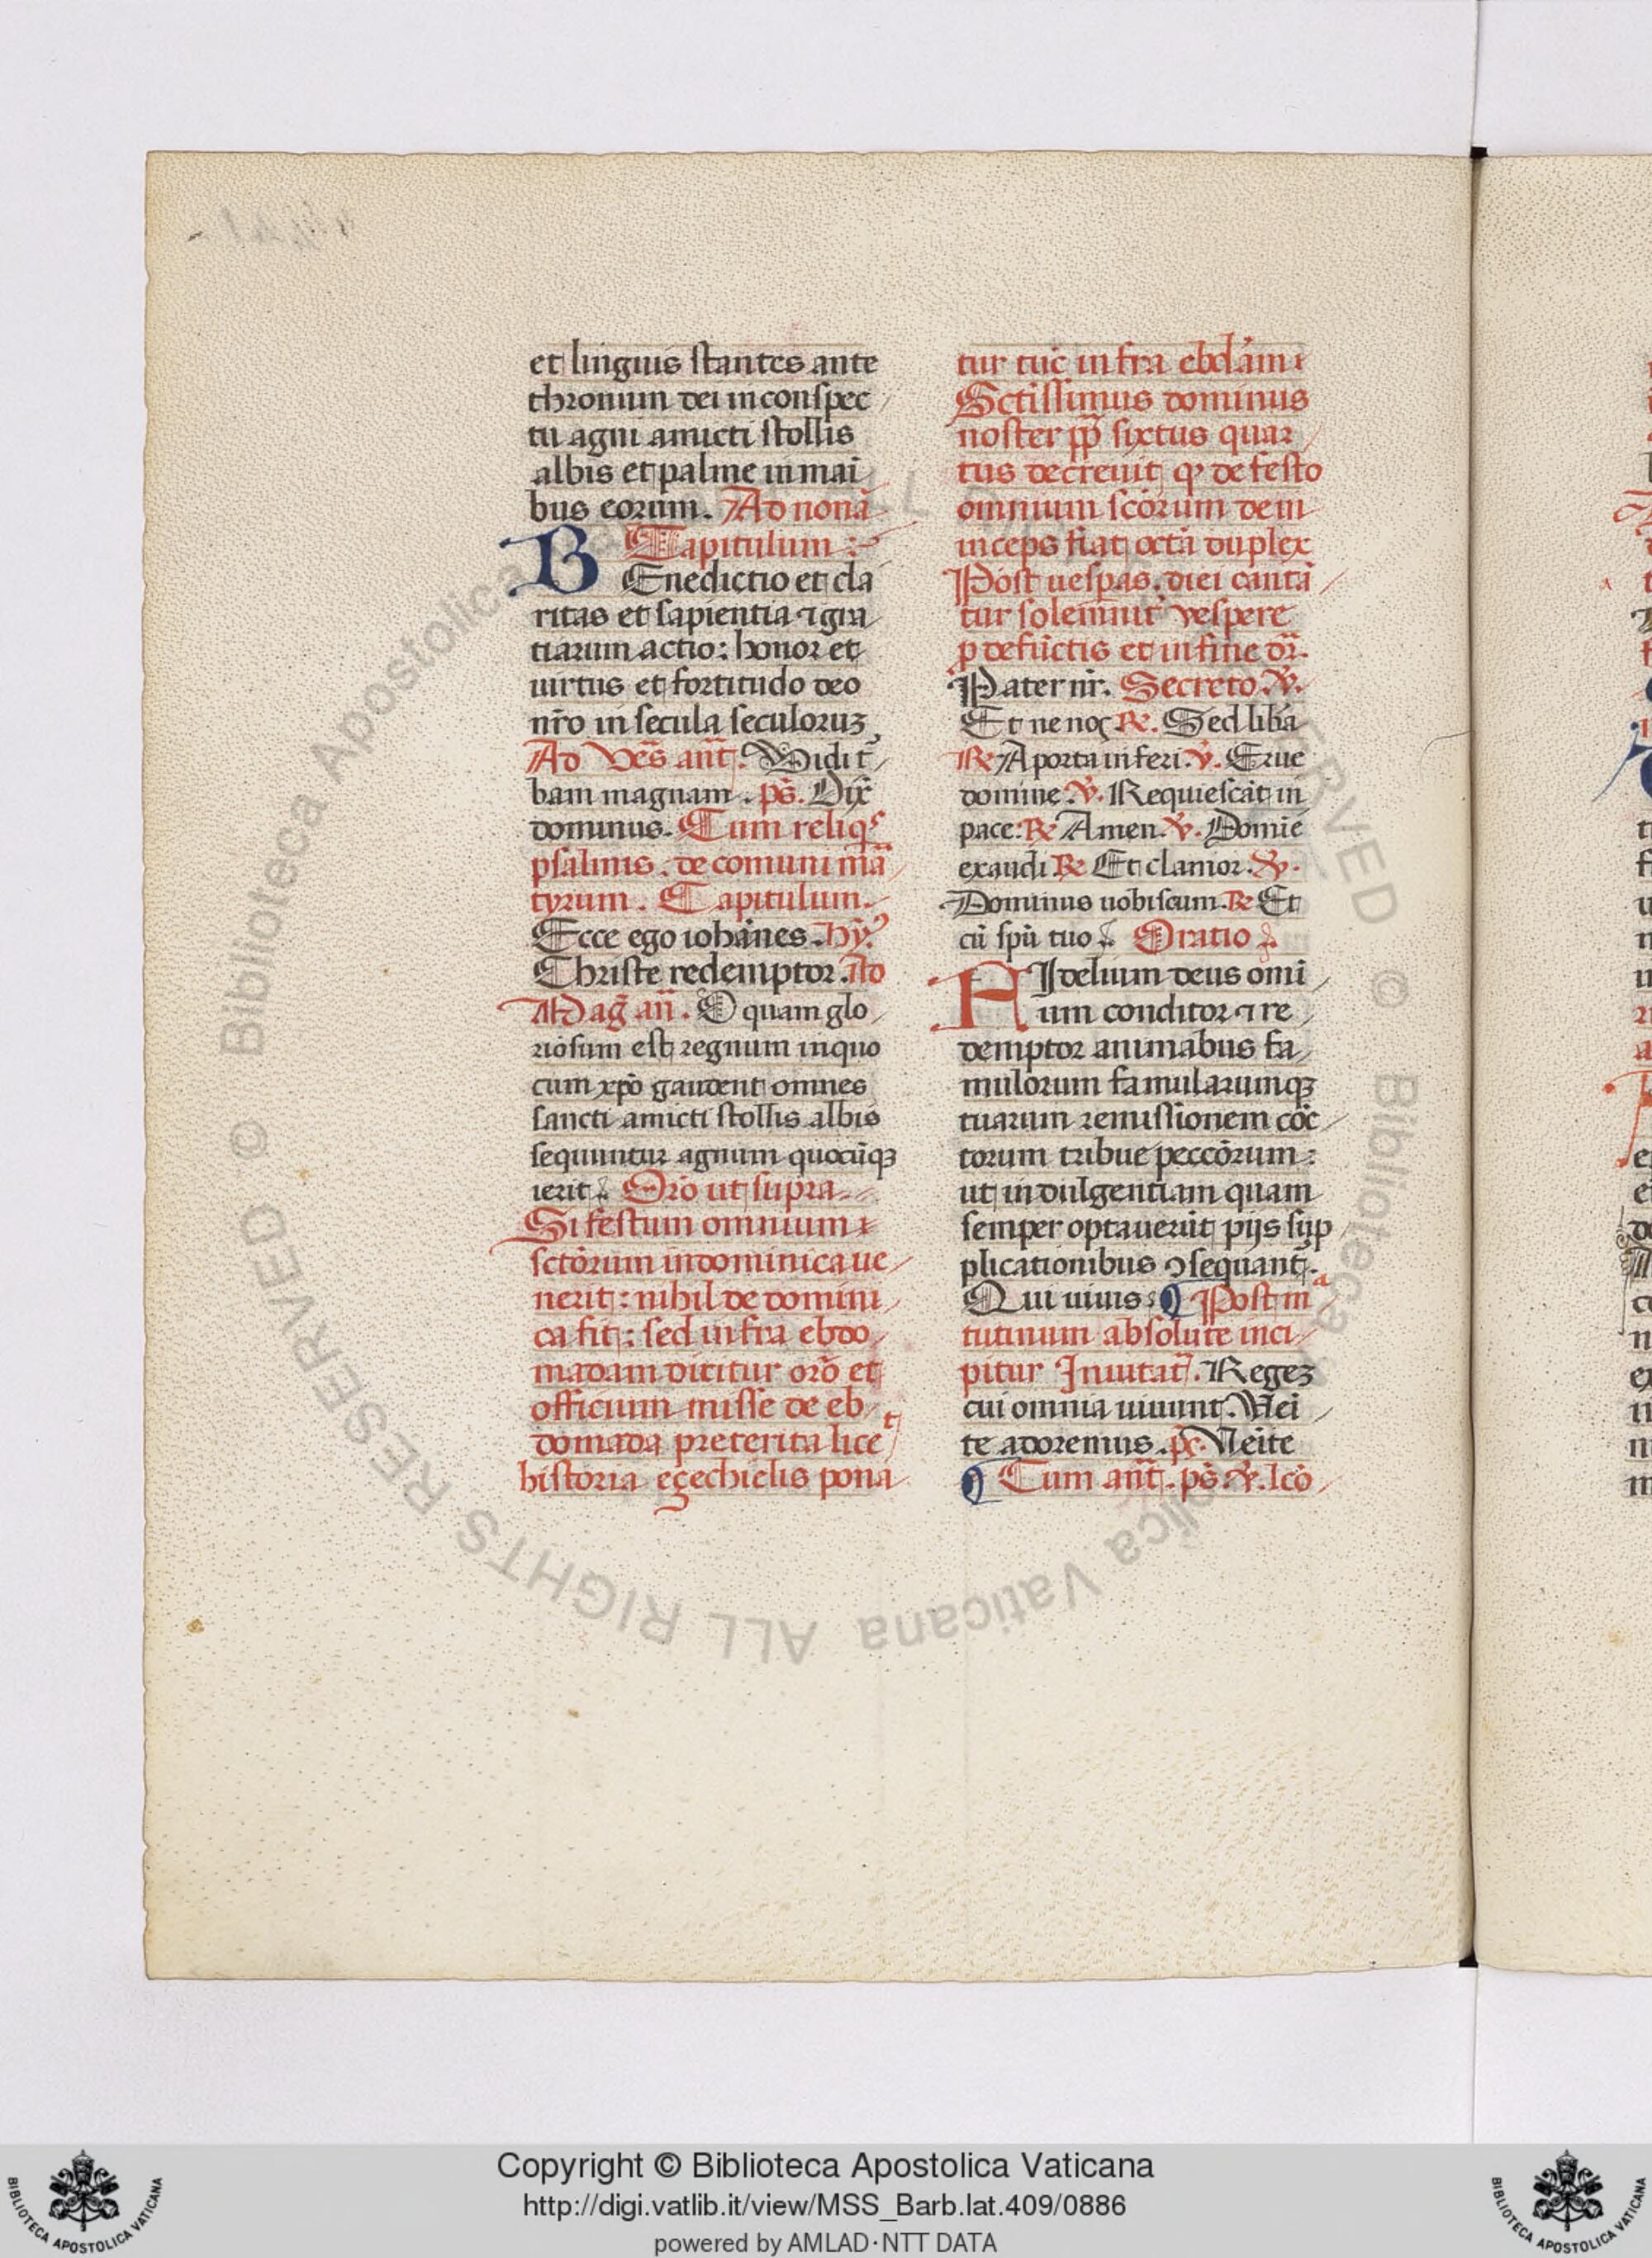 et linguis stantes ante
thronum dei in conspec
tu agni amicti stollis
albis et palme in mai
bus eorum. Ad nonā
Capitulum :
BEnedictio et cla
ritas et sapientia ⁊ gra
tiarum actio: honor et
uirtus et fortitudo deo
nr̄o in secula seculoruꝫ
Ad Ve᷒s an̄t. Vidi t̄
bam magnam. ps̄. Dix̄
dominus. Cum reliq᷒
psalmis. de comuni mā
tyrum. Capitulum.
Ecce ego iohānes. hȳ.
Christe redemptor. Ad
Mag̃ an̄. O quam glo
riosum est regnum in quo
cum xp̄o gaudent omnes
sancti amicti stollis albis
sequuntur agnum quocūqꝫ
ierit. Or̄o ut supra.
Si festum omnium
sctōrum in dominica ue
nerit: nihil de domini
ca fit: sed infra ebdo
madam dicitur or̄o et
officium misse de eb
domada preterita lice t
historia eçechielis pona
tur tūc infra ebdām
Sctissimus dominus
noster pp̄ sixtus quar
tus decreuit ꝙ de festo
omnium scōrum dein
inceps fiat octā duplex
Post uespas. diei cantā
tur solemnit̄ vespere
p defūctis et in fine dr̄.
Pater nr̄. Secreto. ℣.
Et ne noç ℞. Sed libā
℞ A porta inferi. ℣. Erue
domine. ℣. Requiescāt in
pace: ℞ Amen. ℣. Domīe
exaudi ℞ Et clamor. ℣.
Dominus uobiscum. ℞ Et
cū spū tuo. Oratio
FIdelium deus omī
um conditor ⁊ re
demptor animabus fa
mulorum famularumqꝫ
tuarum remissionem cōc
torum tribue peccōrum:
ut indulgentiam quam
semper optauerūt pijs sup
plicationibus ꝯsequant̄.
Qui uiuis: ¶ Post m a
tutinum absolute inci
pitur Inuitat̄. Regeꝫ
cui omnia uiuunt. Vēi
te adoremus. ps̄. Vēite
¶ Cum an̄t. ps̄. ℣. lcō
© Biblioteca Apostolica Vaticana ALL RIGHTS RESERVED
Copyright © Biblioteca Apostolica Vaticana
http://digi.vatlib.it/view/MSS_Barb.lat.409/0886
powered by AMLAD·NTT DATA
BIBLIOTECA APOSTOLICA VATICANA
BIBLIOTECA APOSTOLICA VATICANA